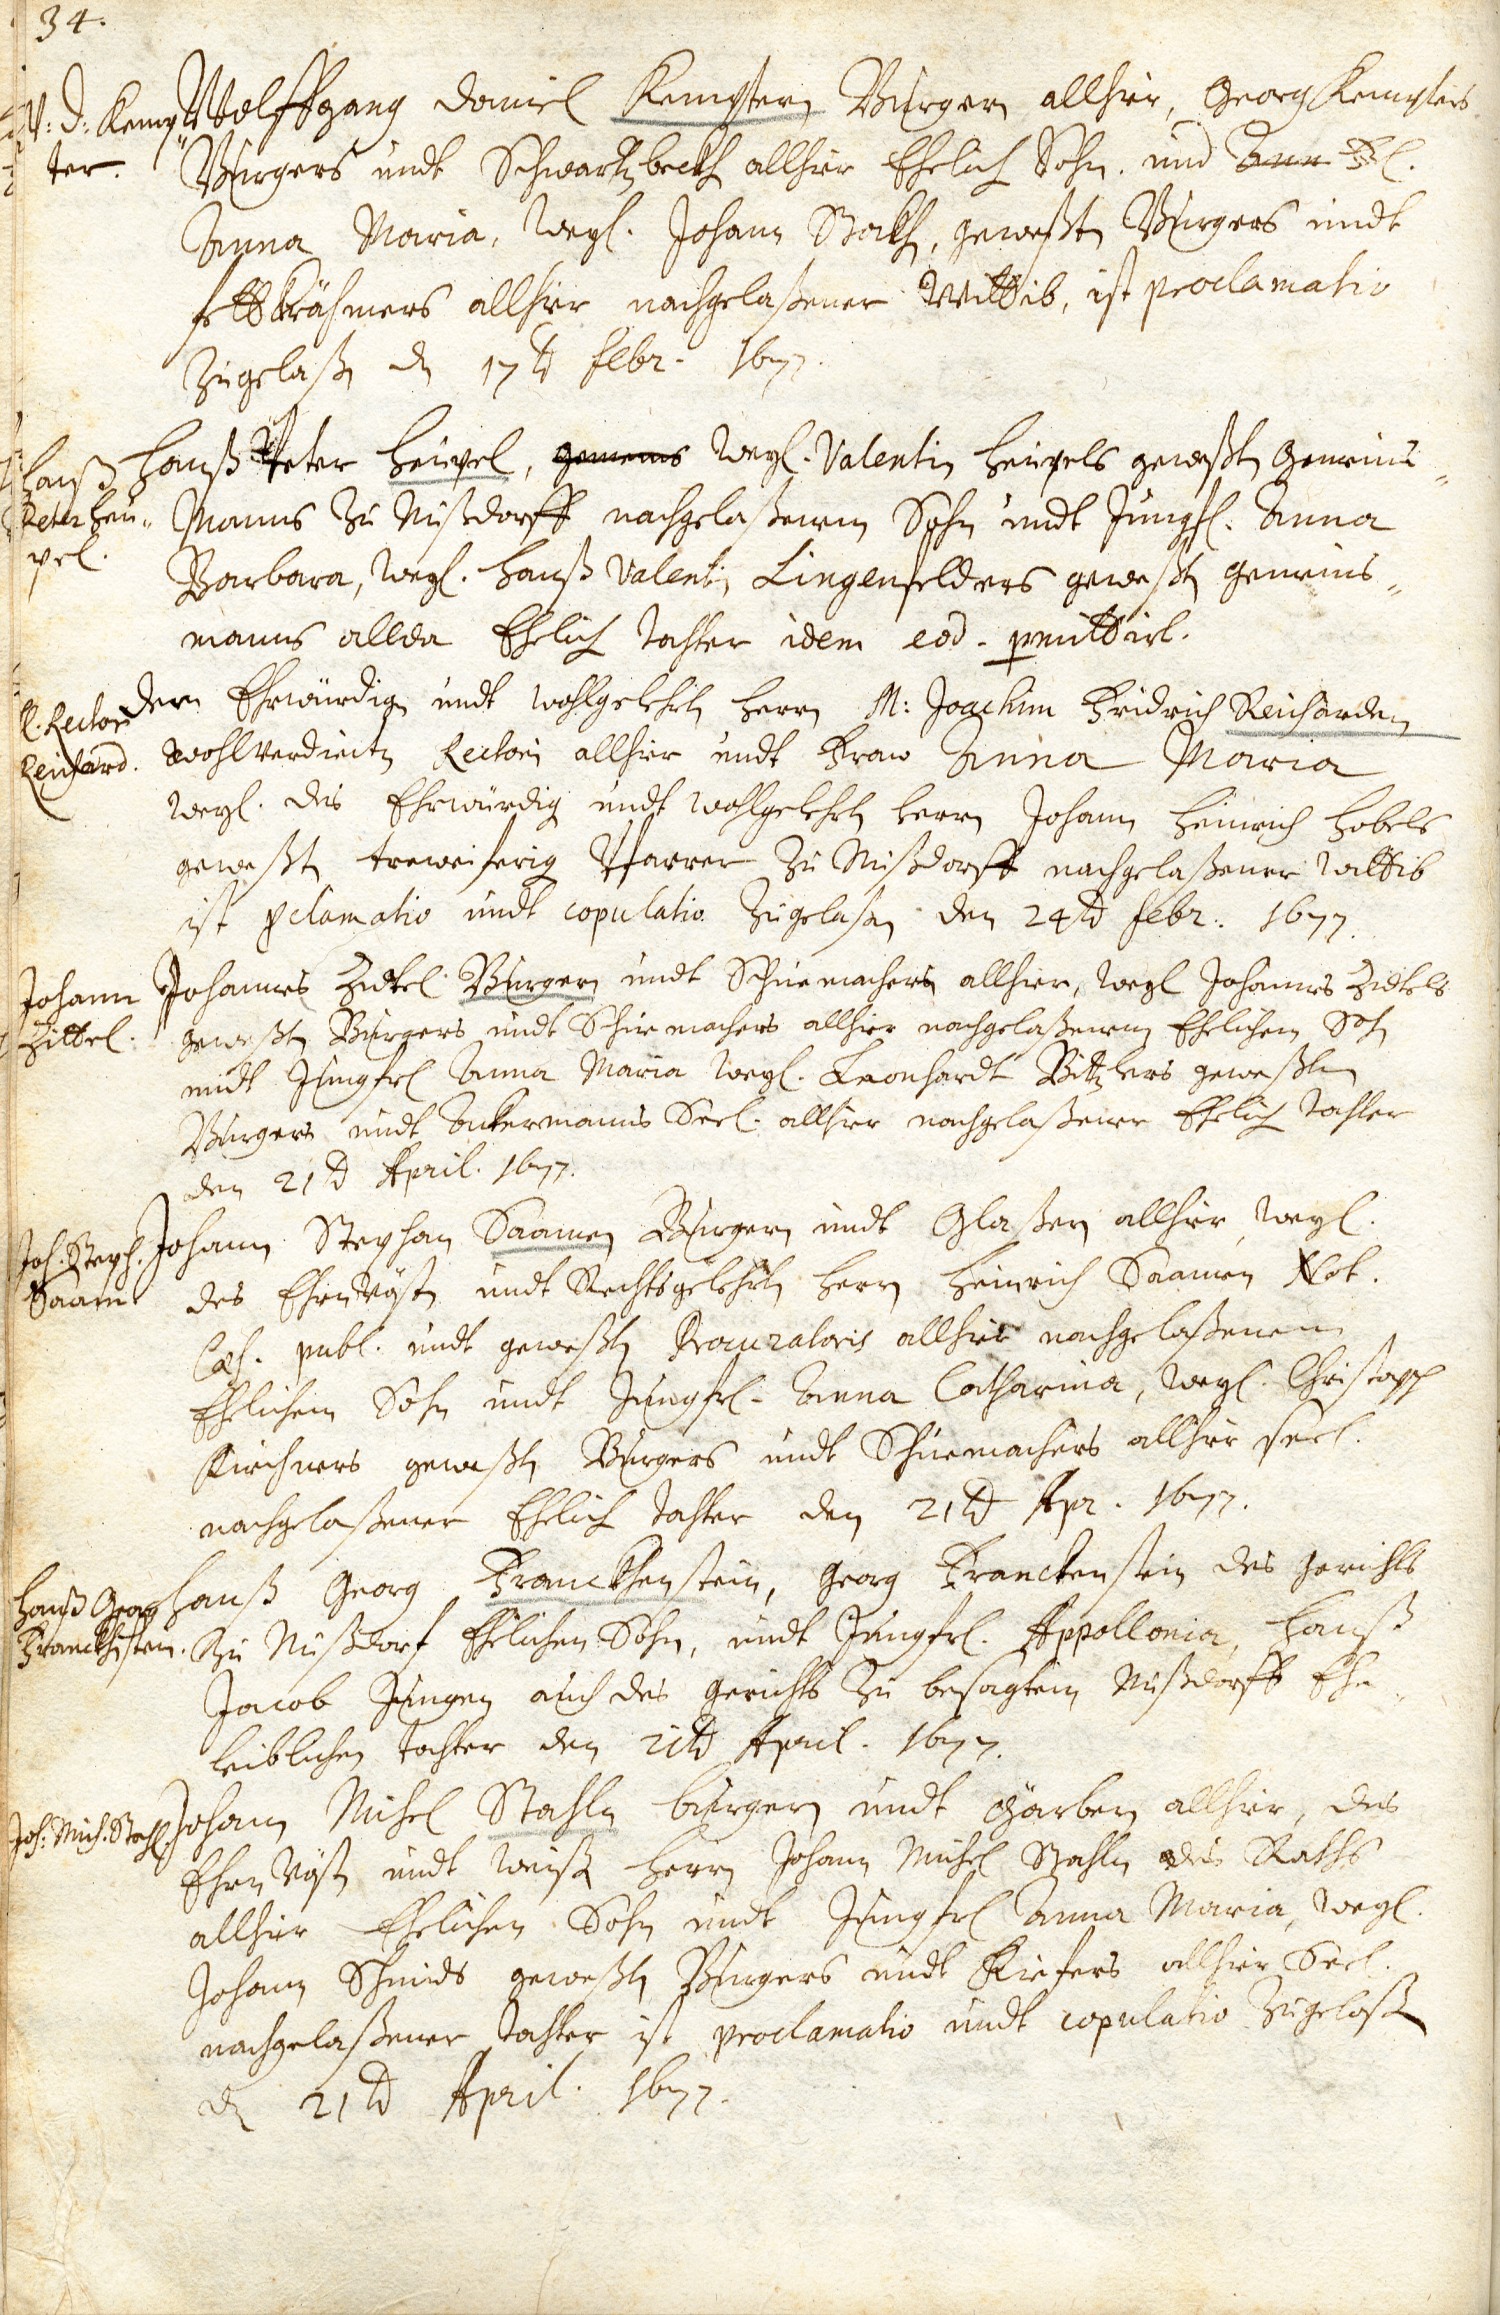 34.
W: D: Kemp
ter.
Wolffgang Daniel Kemptern Burgern allhier, Georg Kempters
Burgers undt Schwartzbeckh allhier Ehelich Sohn. und Ann Fl.
Anna Maria, Weyl. Johann Stockh, geweßt Burgers undt
fettkrähmers allhier nachgelaßener Wittib, ist proclamatio
Zugelaß d 17t febr. 1677.
Hanß
Peter Heu„
pel.
Hanß Peter Heupel, gemeins Weyl. Valentin Heupels geweßt Gemeins„
Manns Zu Nußdorff nachgelaßenem Sohn undt Jungfl. Anna
Barbara, Weyl. Hanß Valentin Lingenfelders geweßt gemeins„
manns allda Ehelich Tochter idem eod. permittirt.
H. Rector
Reichard.
Dem Ehrwürdig undt Wohlgelehrt Herrn M: Joachim Fridrich Reicharden
wohlverdient Rectori allhier undt Fraw Anna Maria
Weyl. des Ehrwürdig undt Wohlgelehrt Herrn Johann Heinrich Hobels
geweßt treweiferig Pfarrer Zu Nußdorff nachgelaßener Wittib
ist pclamatio undt copulatio Zugelaßn den 24t Febr. 1677.
Johann
Zittel.
Johannes Zittel Burgern undt Schuemachern allhier, Weyl Johannes Zittels
geweßt Burgers undt Schuemachers allhier nachgelaßenem Ehelichen Sohn
undt Jungfrl Anna Maria Weyl. Leonhardt Bitzlers geweßten
Burgers undt Ackermanns Seel. allhier nachgelaßener Ehelich Tochter
den 21t April. 1677.
Joh. Steph.
Saam
Johann Stephan Saamen Burgern undt Glaßern allhier, Weyl.
des EhrnVöst undt Rechtsgelehrt Herrn Heinrich Saamen Not.
Cæs. publ. undt geweßt Procuratoris allhier nachgelaßenem
Ehelichem Sohn undt Jungfrl. Anna Catharina, Weyl. Christoph
Kirchners geweßt Burgers undt Schuemachers allhier seel.
nachgelaßener Ehelich Tochter den 21t Apr. 1677.
Hanß Georg
Franckhstein.
Hanß Georg Franckhenstein, Georg Franckenstein des Gerichts
Zu Nußdorf Ehelichen Sohn, undt Jungfrl. Appollonia, Hanß
Jacob Jungen auch des Gerichts Zu besagtem Nußdorff Ehe„
leiblichen Tochter den 21t April. 1677.
Joh: Mich: Stahl.
Johann Michel Stahln burgern undt Gärbern allhier, des
EhrnVöst undt Weiß Herrn Johann Michel Stahln des Raths
allhier Ehelichen Sohn undt Jungfrl Anna Maria, Weyl.
Johann Schmids geweßt Burgers undt Kiefers allhier Seel.
nachgelaßener Tochter ist proclamatio undt copulatio Zugelaß
d 21t April. 1677.